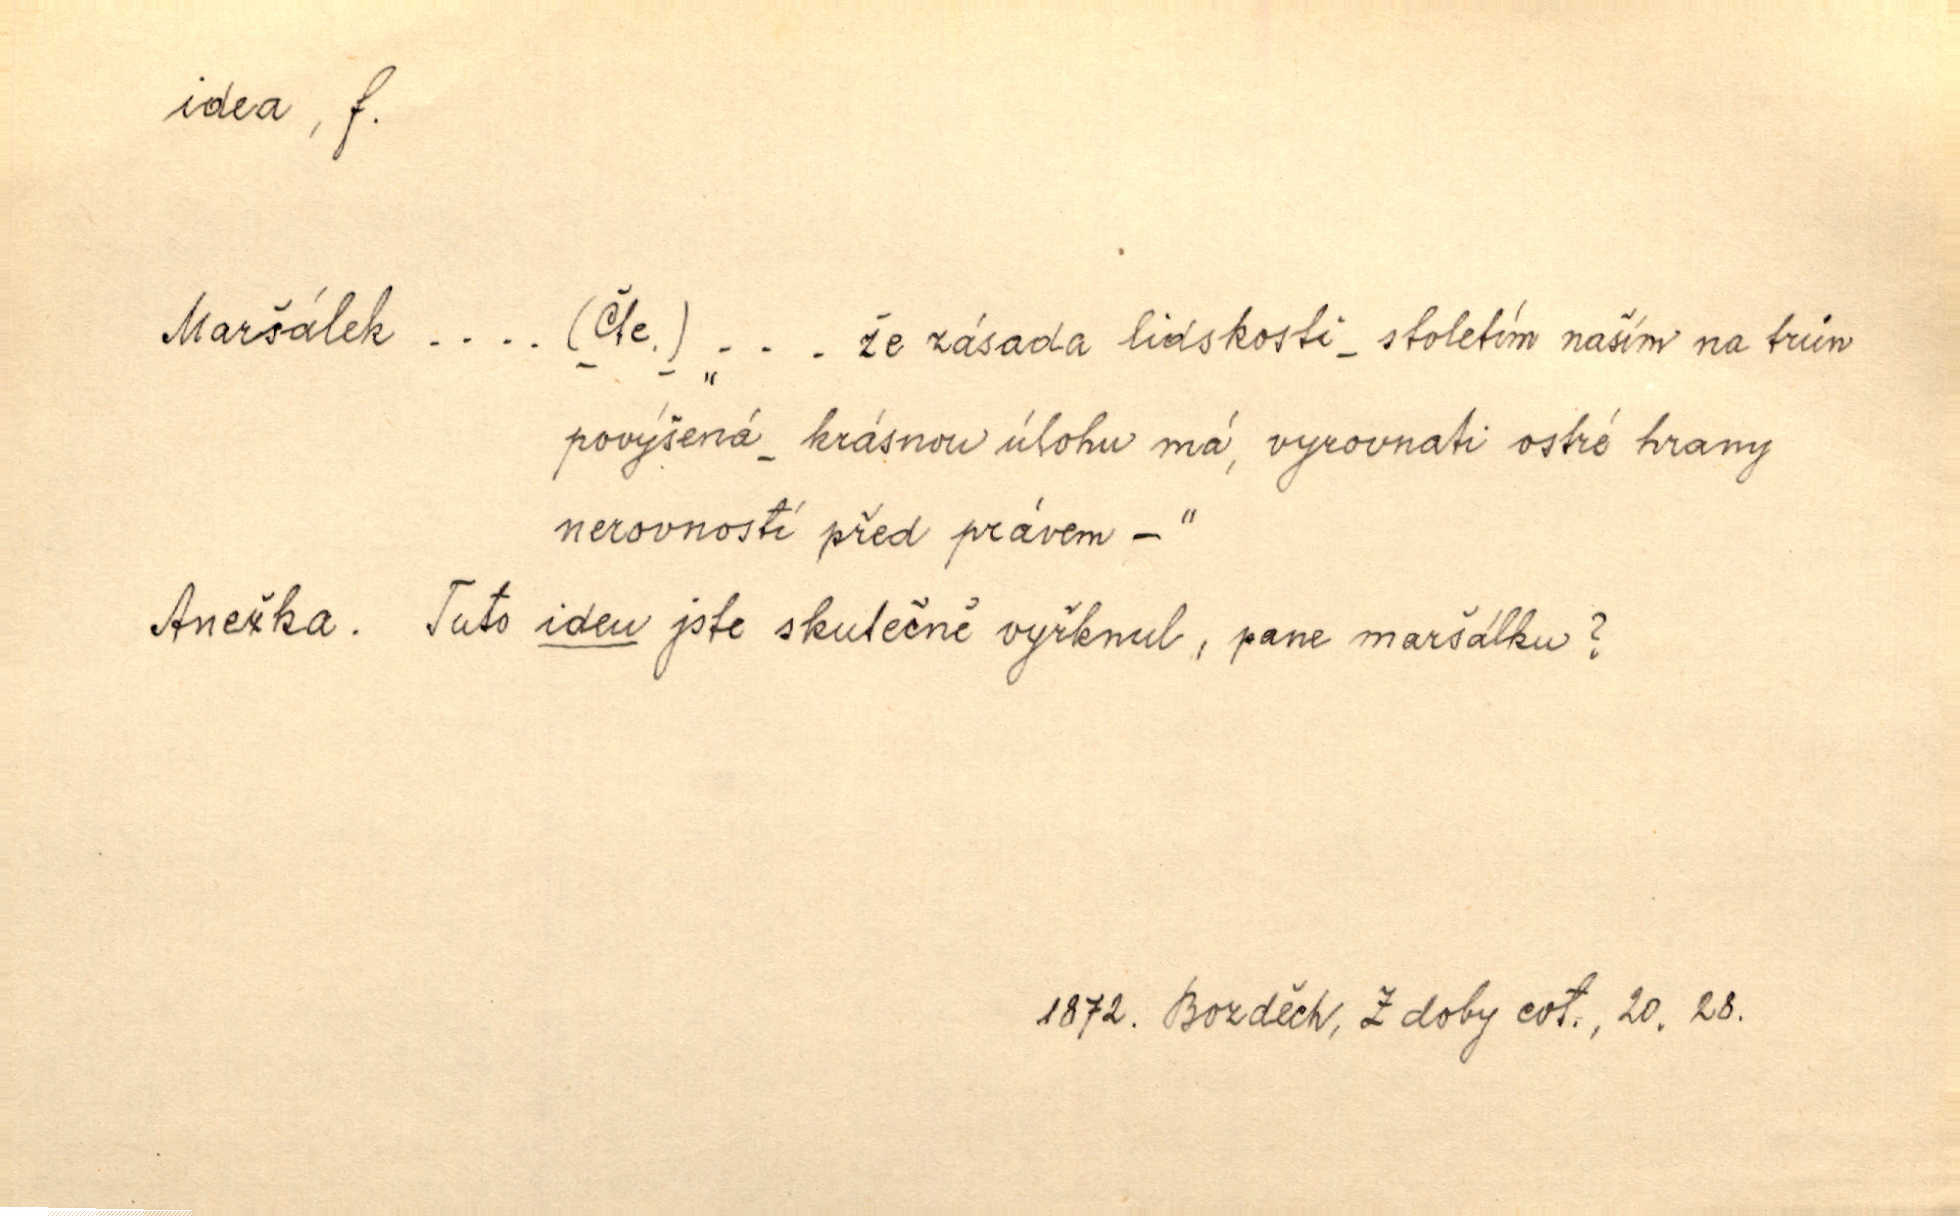 idea, f.
Maršálek .... (Čte.) „... že zásada lidskosti – stoletím naším na trůn
povýšená – krásnou úlohu má, vyrovnati ostré hrany
nerovností před právem –"
Anežka. Tuto ideu jste skutečně vyřknul, pane maršálku?
1872. Bozděch, Z doby cot., 20. 28.